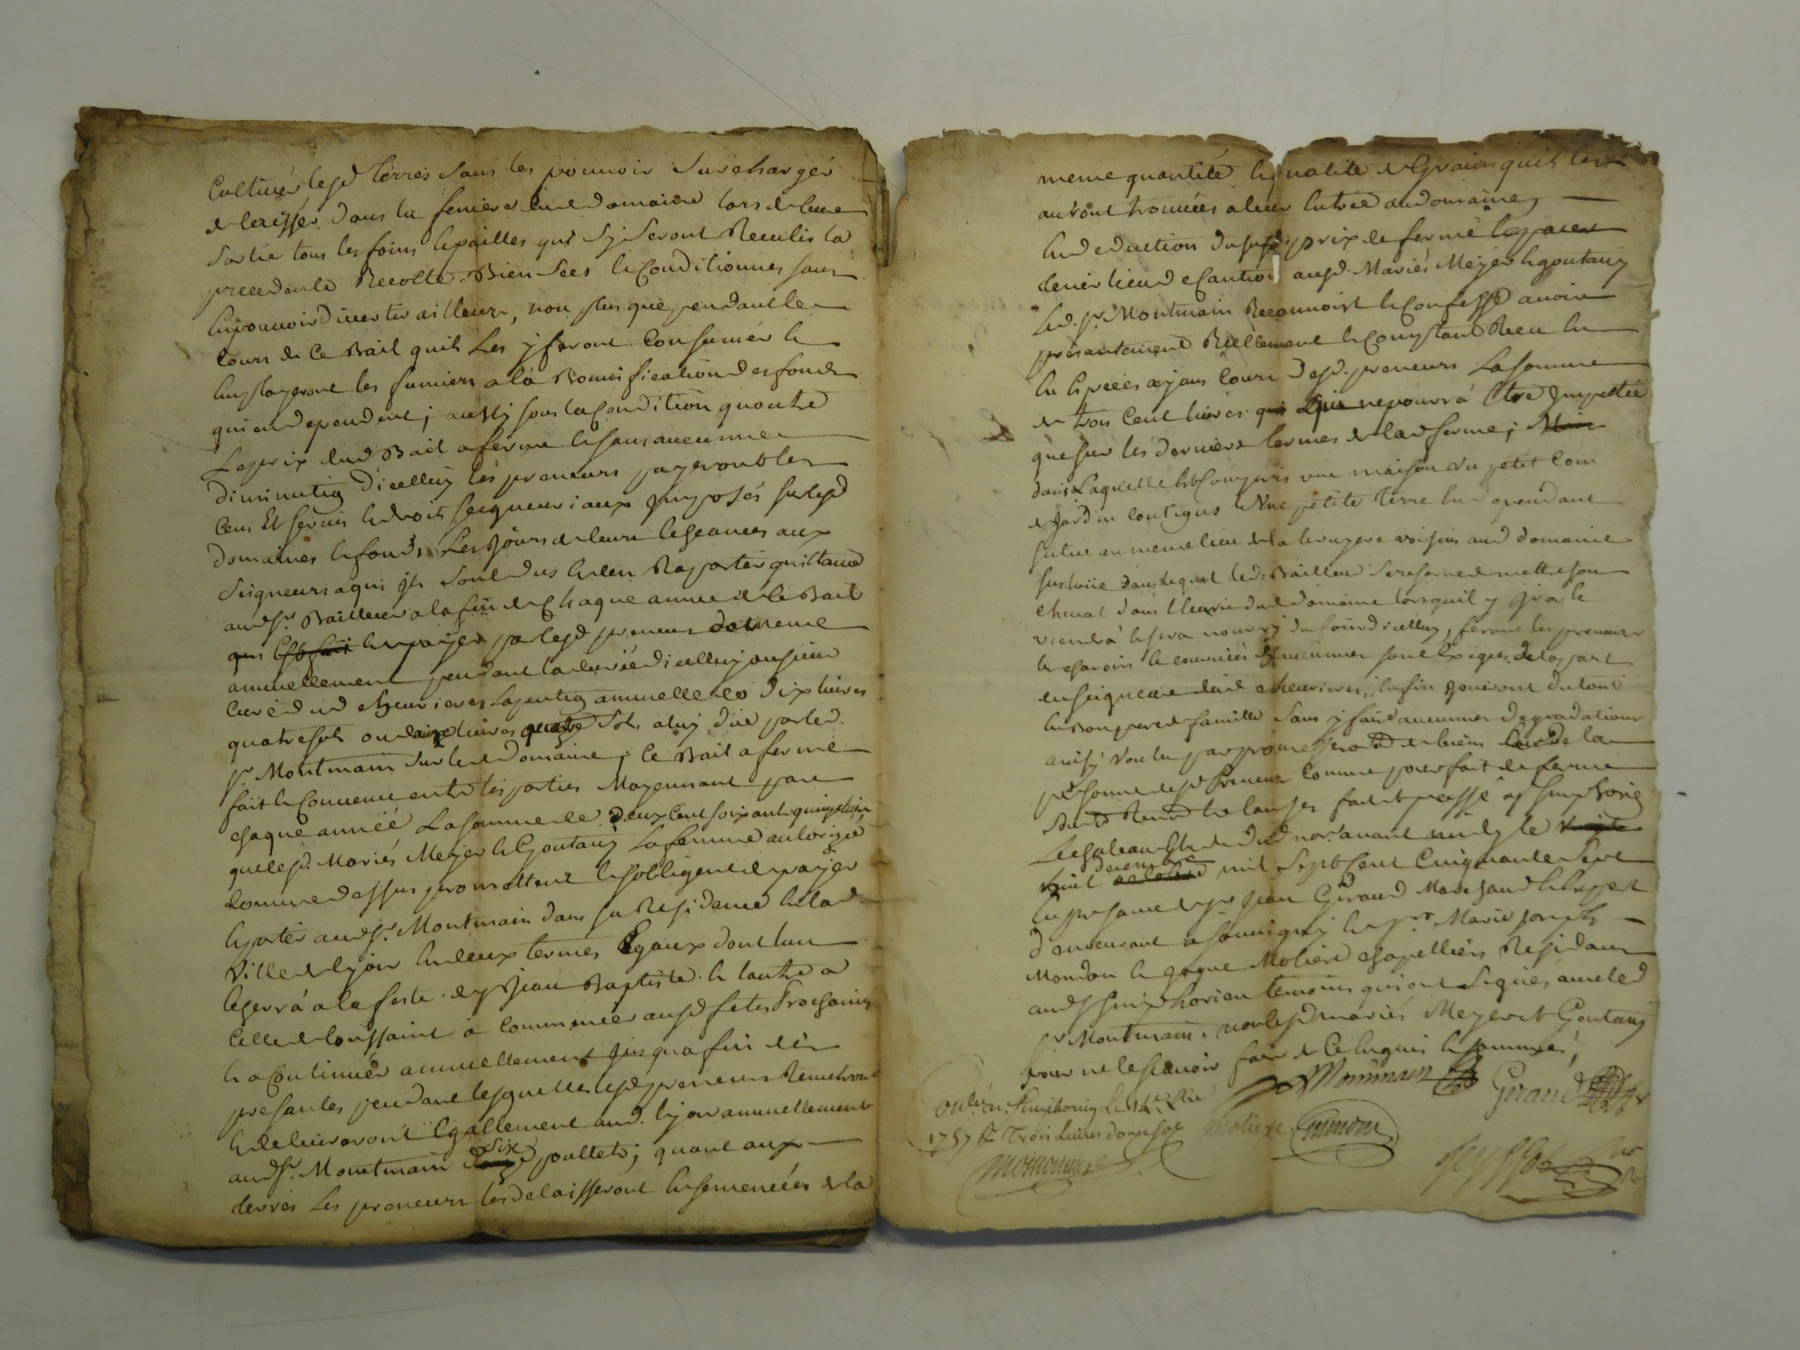 Cultiver lesd terres sans les pouvoir surcharger
de laisser dans la feniere dud domaine lors de leur
sortie tous les foins et pailles qui sy seront Reculis la
precedente Recolte Bien secs et Conditionnés sans
les pouvoir divertir ailleurs, non plus que pendant le
cours de Ce Bail quils Les y feront Consumer et
Employeront les fumiers a la Bonnification des fonds
qui en dependent; aussy sous la Condition quoutre
Le prix dud Bail a ferme et sans aucunne
diminution dicelluy les preneurs payeront les
Cens Et servis et droits seigneuriaux imposés sur lesd
domaines et fonds, Les Jours de leurs echeances aux
Seigneurs a qui ils sont dus et den Raporter quittance
aud sr. Bailleur a la fin de Chaque année de Ce Bail
et payer par lesd preneurs de meme
annuellement pendant la durée dicelluy au sieur
Curé dud La pention annuelle de dix livres
quatre sols livres quatre sols, a luy due par led.
sr. Montmain sur led domaine; Ce Bail a ferme
fait et Convenu entre les parties Moyennant par
chaque année La somme de deux Cent soixante quinze livres
que lesd. Mariés Meyer et Goutany La femme autorizée
Comme dessus promettent et sobligent de payer
et porter aud sr. Montmain dans sa Residance en lad.
ville de lyon en deux termes Egaux dont lun
echerra a la feste de st Jean Baptiste et lautre a
Celle de toussaint a Commencer ausd fetes Prochaines
et a Continuer annuellement jusqua fin des
presantes pendant lesquelles lesd preneurs Remettront
et delivreront Egallement aud. lyon annuellement
aud sr. Montmain six poullets; quant aux
terres Les preneurs les delaisseront Ensemencées de la
meme quantité et qualité de Grains quils les
auront trouvées a leur Entrée aud domaine
En deduction dud prix de ferme
tenir lieu de Caution ausd. Mariés Meyer et Goutany
Led. sr. Montmain Reconnoist et Confesse avoir
presentement Réellement et Comptant Receu
en Especes ayant Cours desd. preneurs La somme
de trois Cent livres qui ne pourra Etre Imputée
que sur les derniers termes de lad ferme;
dans Laquelle est Compris une maison un petit Coin
de Jardin Contigus Une petite terre En dependant
située au meme lieu de la bruyere voisins aud domaine
sus loüé dans lequel led. Bailleur se reserve de mettre son
cheval dans Lecurie dud domaine lorsquil y ira et
viendra et sera nourry du foin dicelluy, feront les preneurs
les charois et courvées
en seigneur dud enfin jouiront du tout
En Bon pere de famille sans y faire aucunnes degradations
ainsy voulu par promesse de biens de la
personne desd preneurs Comme pour fait de ferme
fait et passé a st simphorien
Le Chateau Etude dud nore. avant midy le
huit decembre mil sept Cent Cinquante sept
En presance de sr Jean Giraud Marchand
demeurant a et srs Marie Joseph
Mondon et Moliere chapelliers Residans
aud st simphorien temoins qui ont signés avec led
sr Montmain, non lesd mariés Meyer et Goutany
pour ne le scavoir faire de Ce Enquis et sommés,
Montmain Giraud
Simphorien
1757 R Trois Livres douze sols
Moliere